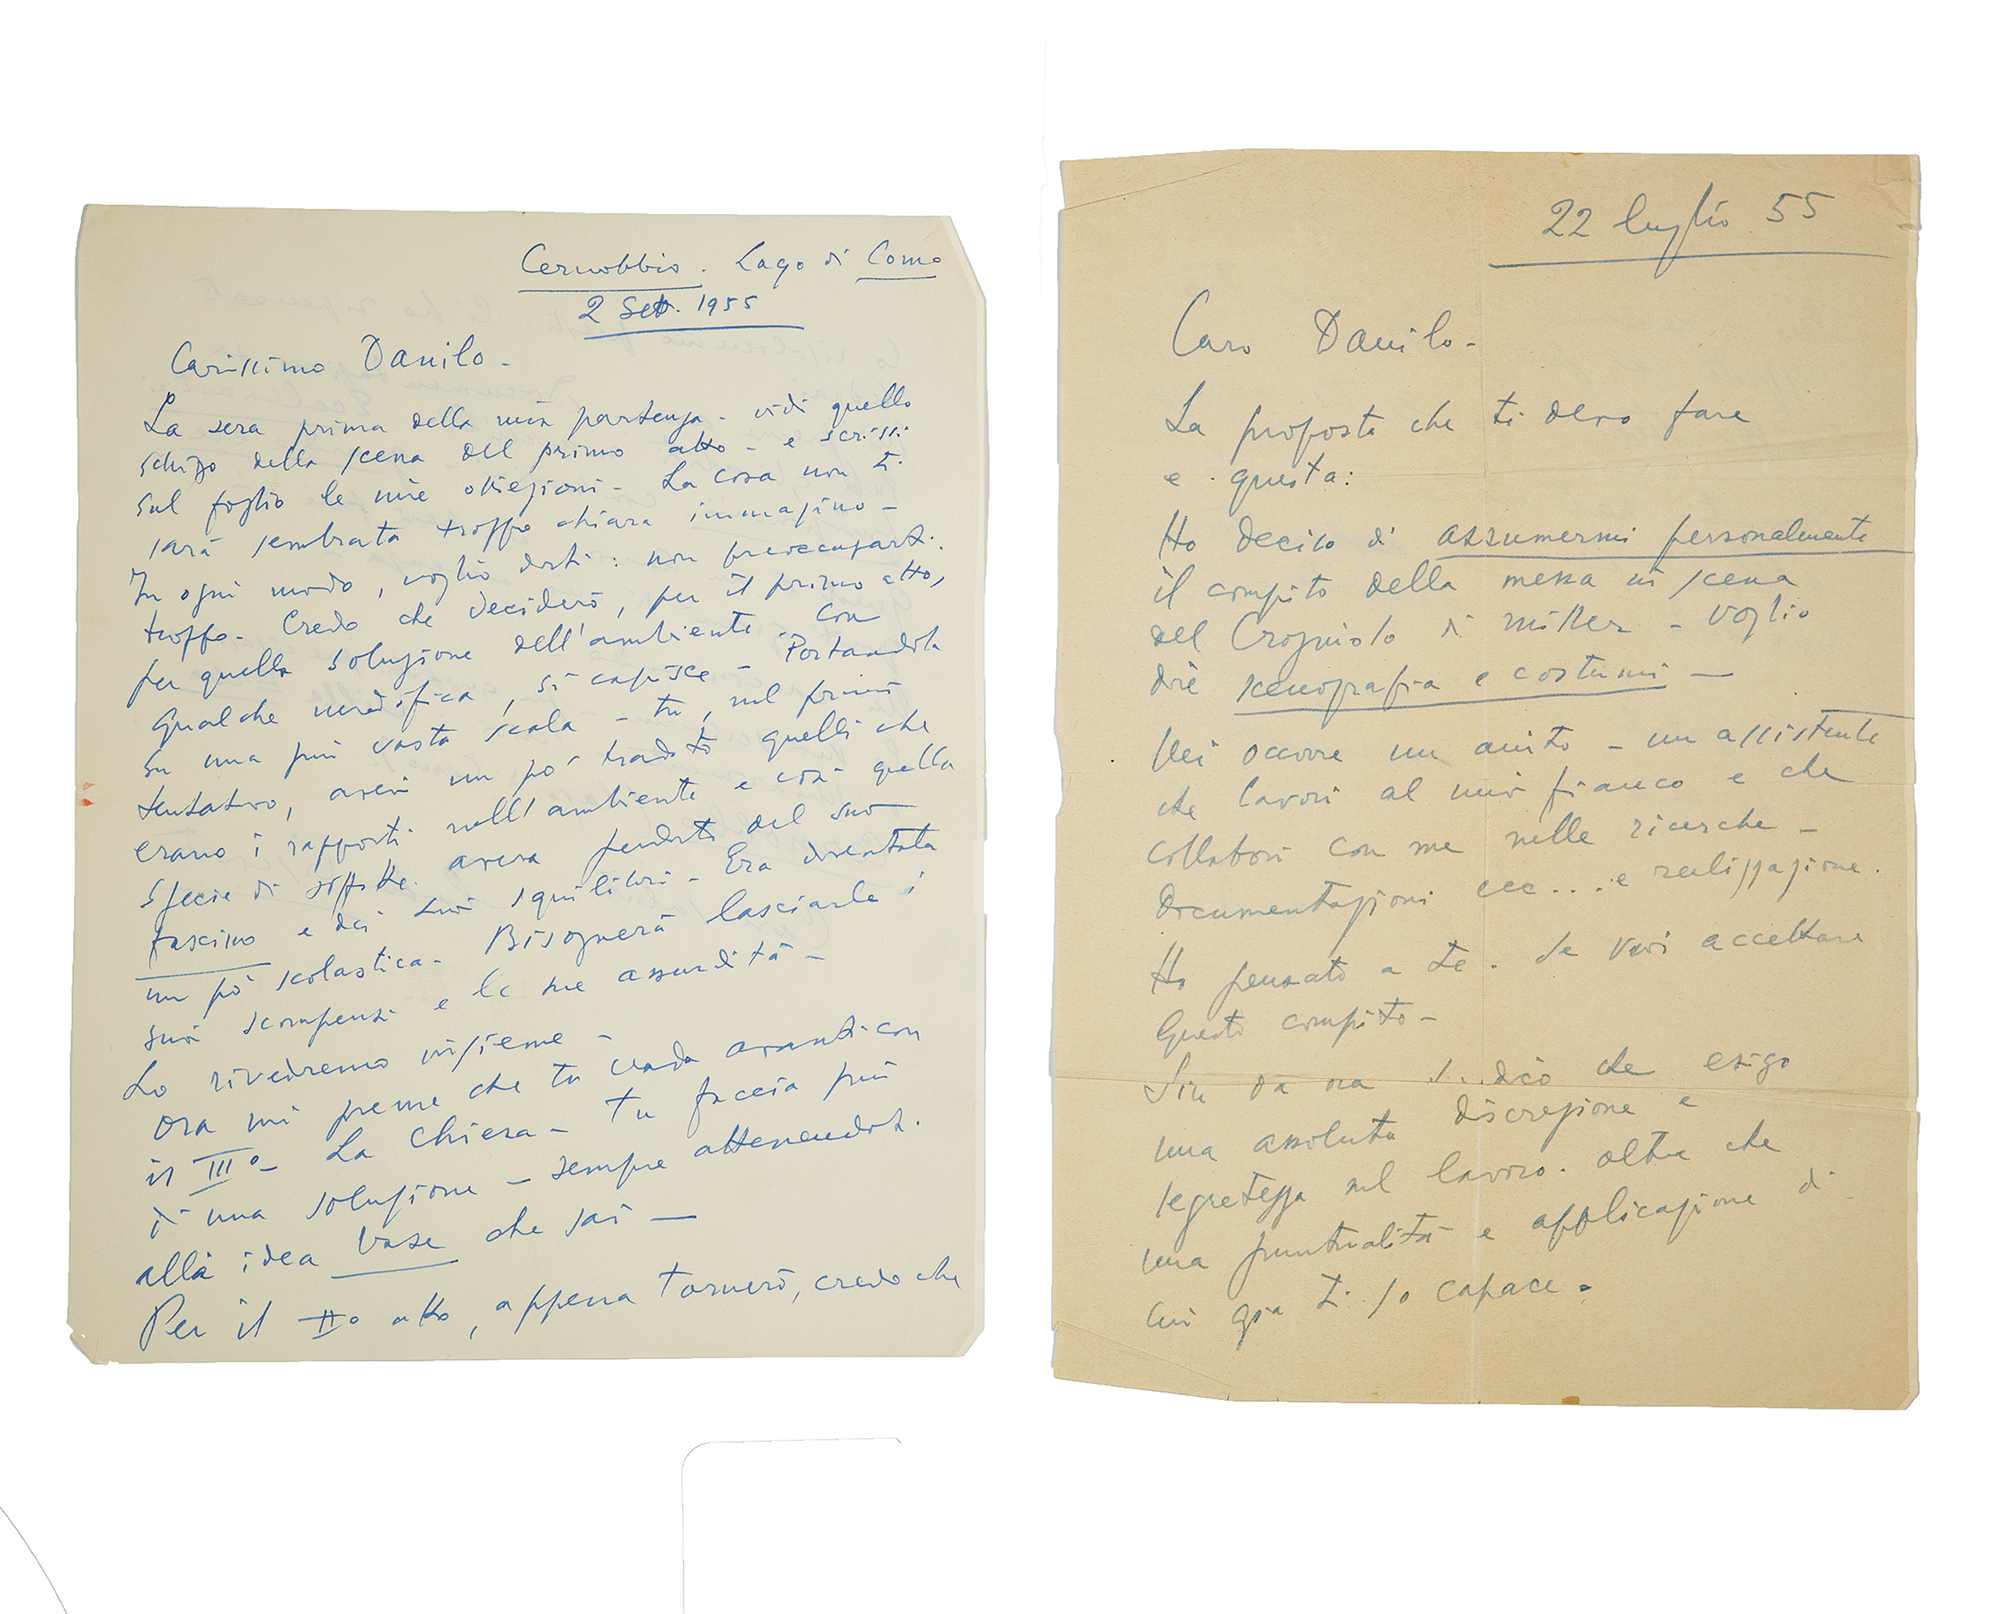 Cernobbio. Lago di Como
2 Sett. 1955
Carissimo Danilo -
La sera prima della mia partenza - vidi quello
schizo della scena del primo atto - e scrissi
sul foglio le mie obiezioni - La cosa non ti
sarà sembrata troppo chiara immagino -
In ogni modo, voglio dirti: non preoccuparti
troppo - Credo che deciderò, per il primo atto,
per quella soluzione dell'ambiente. Con
qualche modifica, si capisce - Portandola
su una più vasta scala - tu, nel primo
tentativo, avevi un po' tradito quelli che
erano i rapporti nell'ambiente e così quella
specie di soffitto aveva perduto del suo
fascino e dei suoi squilibri - Era diventata
un pò scolastica - Bisognerà lasciarle i
suoi scompensi e le sue assurdità -
Lo rivedremo insieme -
Ora mi preme che tu vada avanti con
il IIIº - La Chiesa - tu faccia più
di una soluzione - sempre attenendoti
alla idea base che sai -
Per il IIº atto, appena tornerò, credo che
22 luglio 55
Caro Danilo -
La proposta che ti devo fare
e questa:
Ho deciso di assumermi personalmente
il compito della messa in scena
del Crogiuolo di Miller - voglio
dire scenografia e costumi -
Mi occorre un aiuto - un assistente
che lavori al mio fianco e che
collabori con me nelle ricerche -
documentazioni ecc... e realizzazione.
Ho pensato a te. Se vuoi accettare
questo compito -
Sin da ora ti dico che esigo
una assoluta discrezione e
segretezza sul lavoro. oltre che
una puntualità e applicazione di
cui già ti so capace.